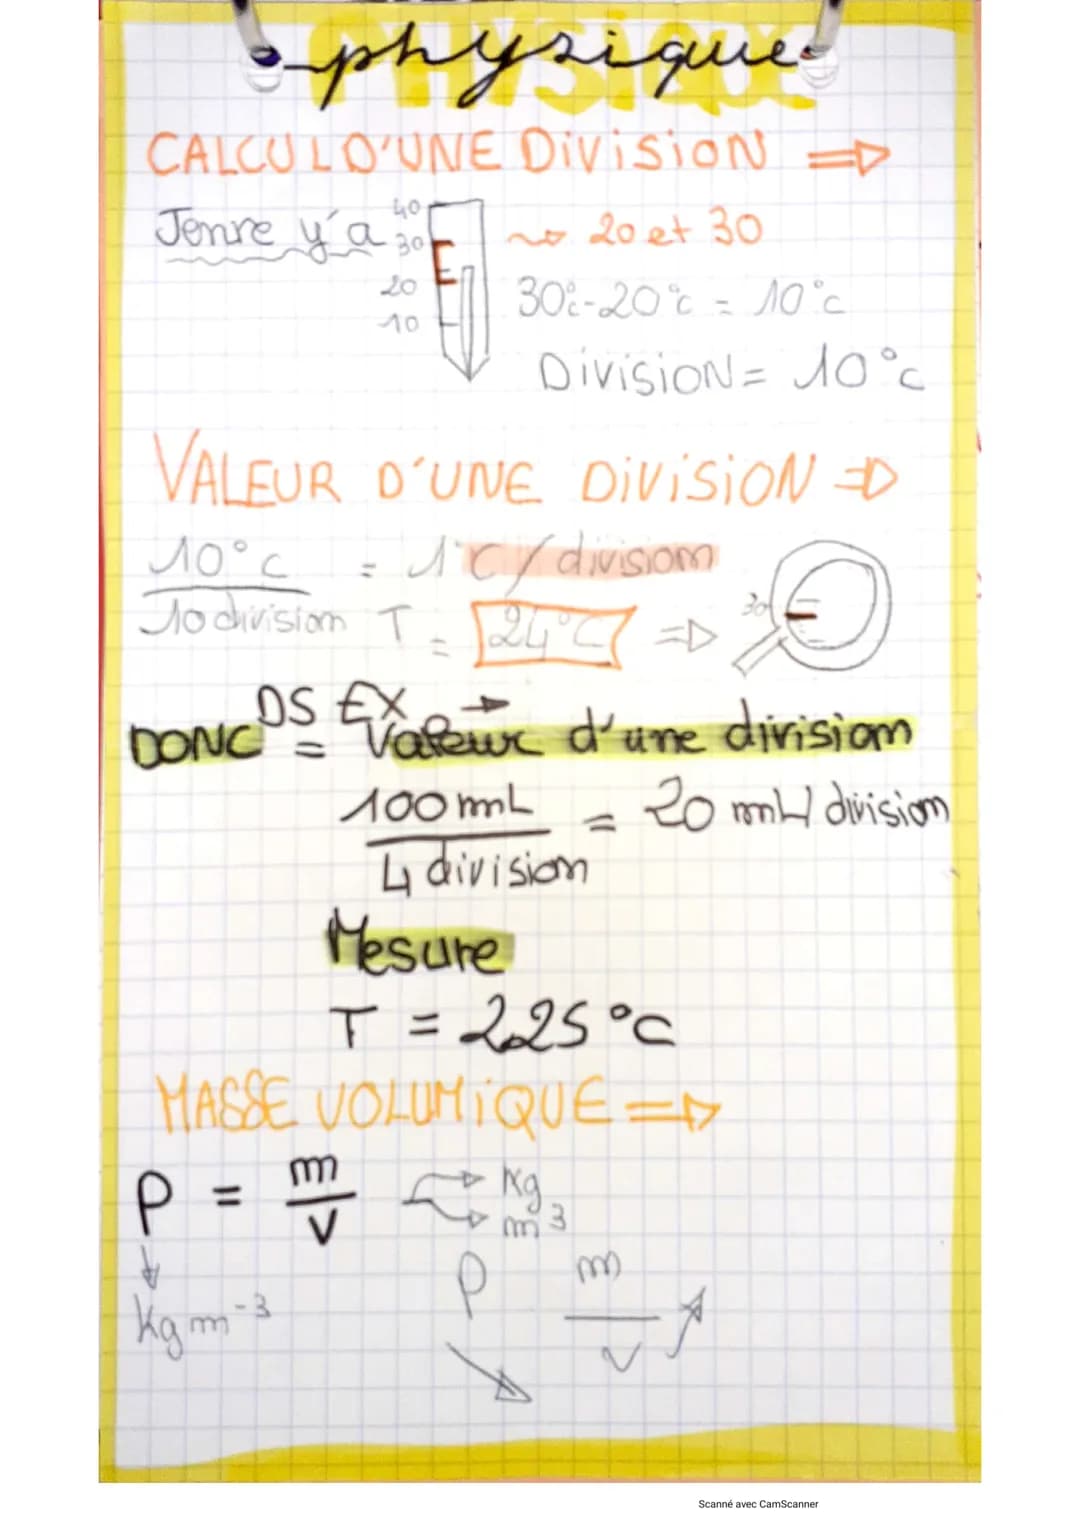 physique
CALCUL D'UNE DiViSiON ⇒
Jenre y'a
40
30
20
10
~> 20 et 30
30°c-20°c = 10°c
DiViSiON = 10°c
VALEUR D'UNE DiViSiON ⇒
10°c / 10 division = 1°C / division
T = 24°C ⇒
30
DS EX →
DONC = Valeur d'une division
100 mL / 4 division = 20 mL/division
Mesure
T = 225 °C
MASSE VOLUMiQUE ⇒
ρ = m / V
Kg
m³
Kg m⁻³
ρ m / V
Scanné avec CamScanner